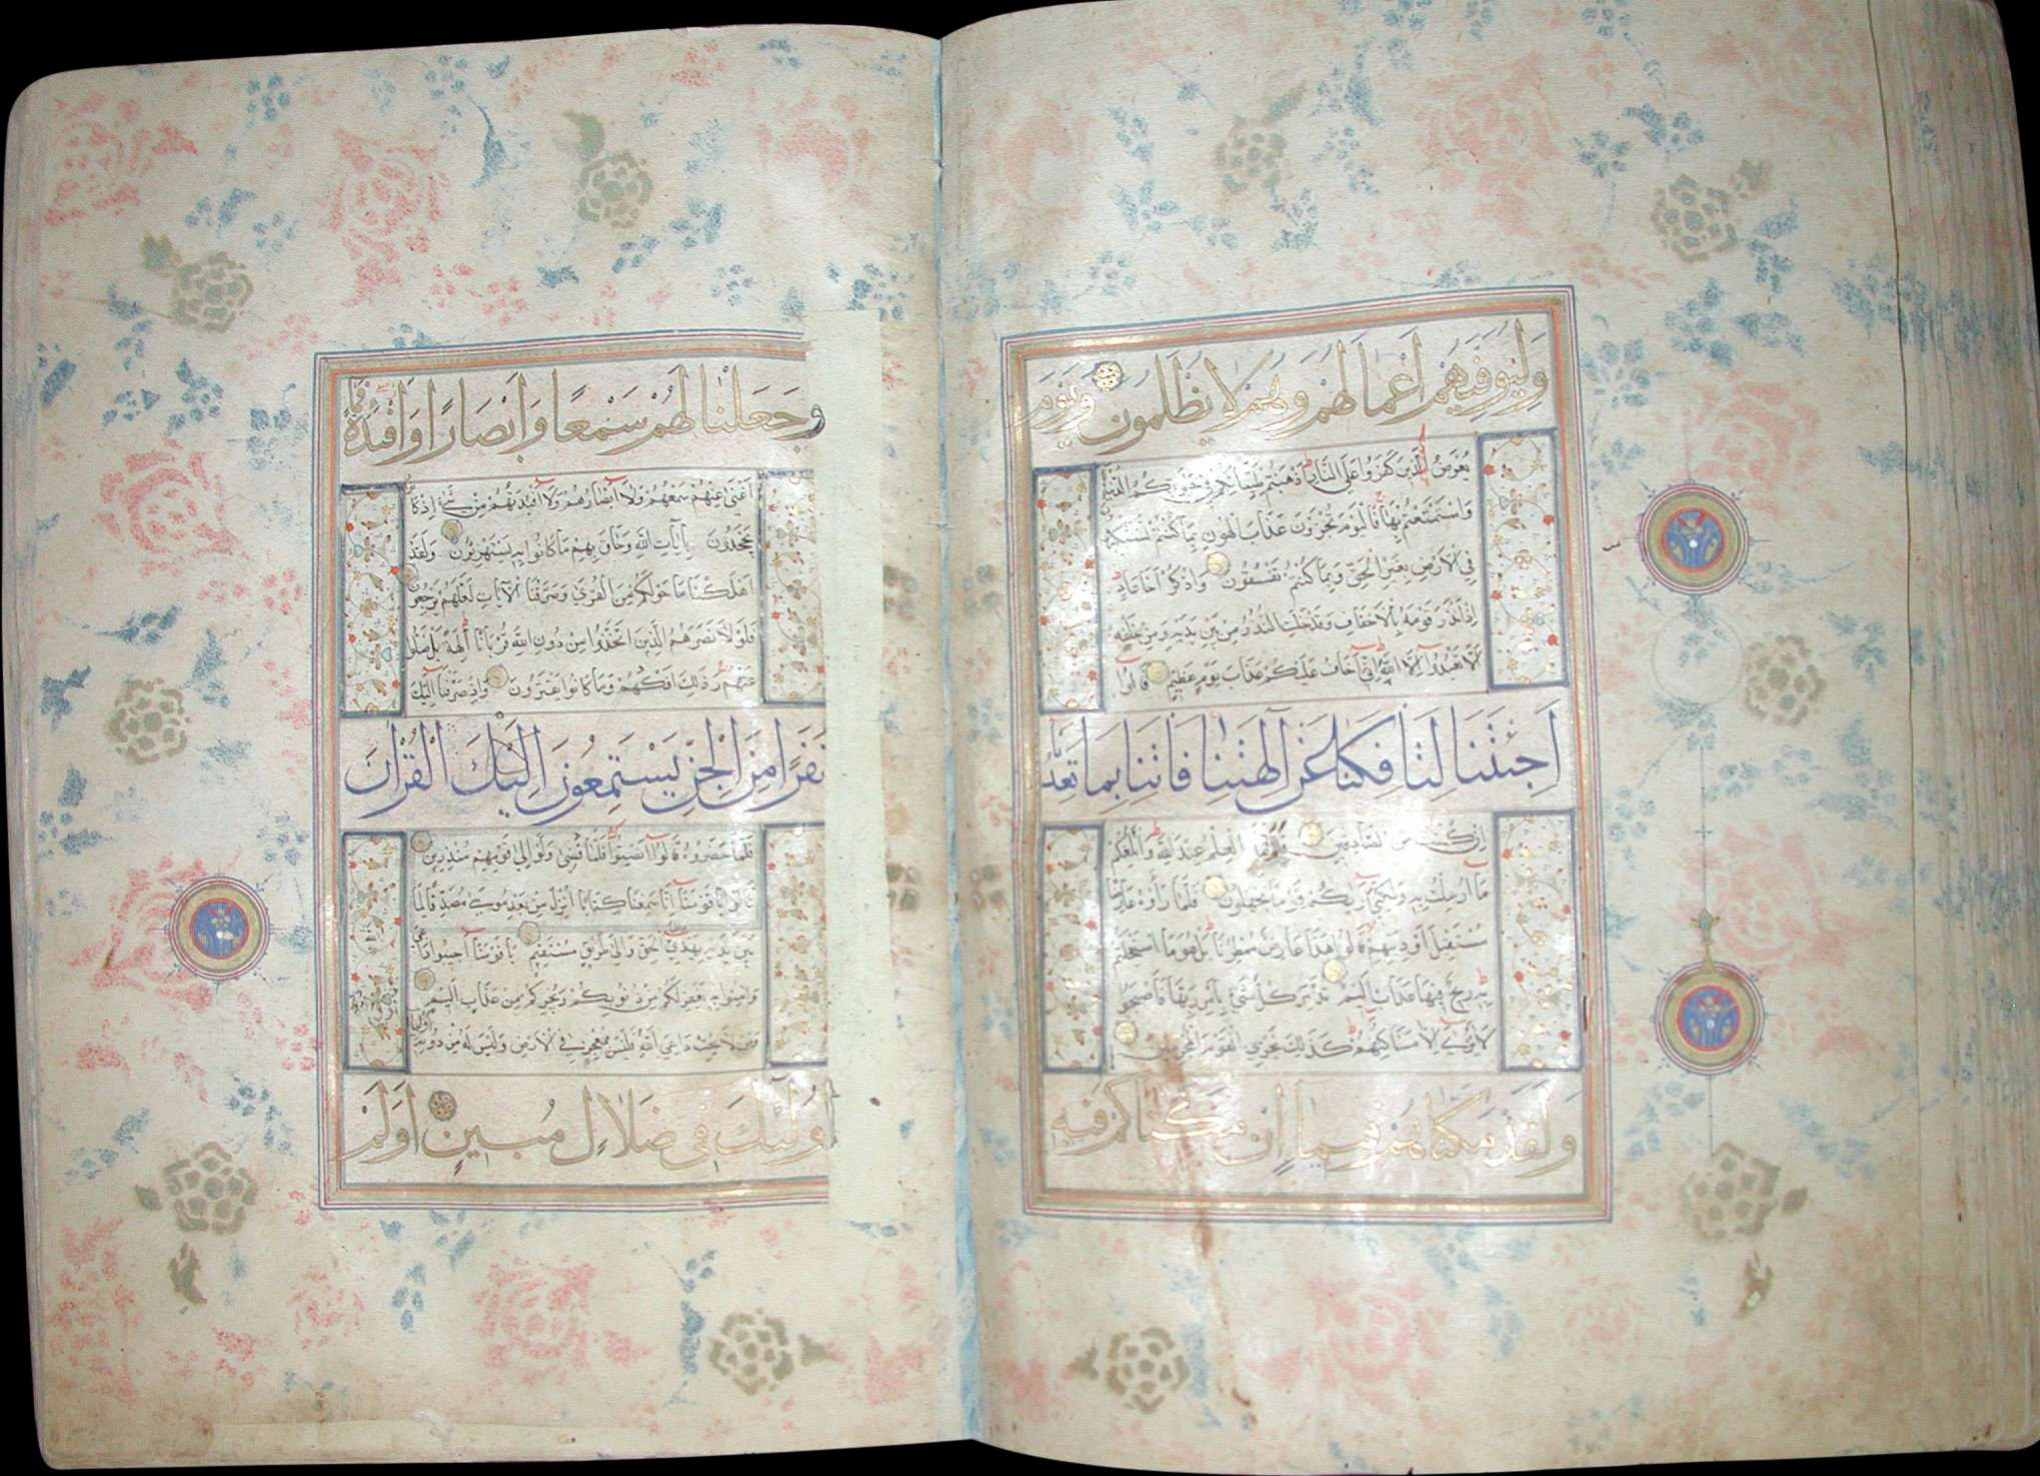 وَلِيُوَفِّيَهُمْ أَعْمَالَهُمْ وَهُمْ لَا يُظْلَمُونَ وَيَوْمَ
يُعْرَضُ الَّذِينَ كَفَرُوا عَلَى النَّارِ أَذْهَبْتُمْ طَيِّبَاتِكُمْ فِي حَيَوتِكُمُ الدُّنْيَا
وَاسْتَمْتَعْتُمْ بِهَا فَالْيَوْمَ تُجْزَوْنَ عَذَابَ الْهُونِ بِمَا كُنْتُمْ تَسْتَكْبِرُونَ
فِي الْأَرْضِ بِغَيْرِ الْحَقِّ وَبِمَا كُنْتُمْ تَفْسُقُونَ وَاذْكُرْ أَخَا عَادٍ
إِذْ أَنْذَرَ قَوْمَهُ بِالْأَحْقَافِ وَقَدْ خَلَتِ النُّذُرُ مِنْ بَيْنِ يَدَيْهِ وَمِنْ خَلْفِهِ
أَلَّا تَعْبُدُوا إِلَّا اللَّهَ إِنِّي أَخَافُ عَلَيْكُمْ عَذَابَ يَوْمٍ عَظِيمٍ قَالُوا
أَجِئْتَنَا لِتَأْفِكَنَا عَنْ آلِهَتِنَا فَأْتِنَا بِمَا تَعِدُنَا
إِنْ كُنْتَ مِنَ الصَّادِقِينَ قَالَ إِنَّمَا الْعِلْمُ عِنْدَ اللَّهِ وَأُبَلِّغُكُمْ
مَا أُرْسِلْتُ بِهِ وَلَكِنِّي أَرَيكُمْ قَوْمًا تَجْهَلُونَ فَلَمَّا رَأَوْهُ عَارِضًا
مُسْتَقْبِلَ أَوْدِيَتِهِمْ قَالُوا هَذَا عَارِضٌ مُمْطِرُنَا بَلْ هُوَ مَا اسْتَعْجَلْتُمْ
بِهِ رِيحٌ فِيهَا عَذَابٌ أَلِيمٌ تُدَمِّرُ كُلَّ شَيْءٍ بِأَمْرِ رَبِّهَا فَأَصْبَحُوا
لَا يُرَى إِلَّا مَسَاكِنُهُمْ كَذَلِكَ نَجْزِي الْقَوْمَ الْمُجْرِمِينَ
وَلَقَدْ مَكَّنَّاهُمْ فِيمَا إِنْ مَكَّنَّاكُمْ فِيهِ
وَجَعَلْنَا لَهُمْ سَمْعًا وَأَبْصَارًا وَأَفْئِدَةً فَمَا
أَغْنَى عَنْهُمْ سَمْعُهُمْ وَلَا أَبْصَارُهُمْ وَلَا أَفْئِدَتُهُمْ مِنْ شَيْءٍ إِذْ كَانُوا
يَجْحَدُونَ بِآيَاتِ اللَّهِ وَحَاقَ بِهِمْ مَا كَانُوا بِهِ يَسْتَهْزِئُونَ وَلَقَدْ
أَهْلَكْنَا مَا حَوْلَكُمْ مِنَ الْقُرَى وَصَرَّفْنَا الْآيَاتِ لَعَلَّهُمْ يَرْجِعُونَ
فَلَوْلَا نَصَرَهُمُ الَّذِينَ اتَّخَذُوا مِنْ دُونِ اللَّهِ قُرْبَانًا آلِهَةً بَلْ ضَلُّوا
عَنْهُمْ وَذَلِكَ إِفْكُهُمْ وَمَا كَانُوا يَفْتَرُونَ وَإِذْ صَرَفْنَا إِلَيْكَ
نَفَرًا مِنَ الْجِنِّ يَسْتَمِعُونَ إِلَيْكَ الْقُرْآنَ
فَلَمَّا حَضَرُوهُ قَالُوا أَنْصِتُوا فَلَمَّا قُضِيَ وَلَّوْا إِلَى قَوْمِهِمْ مُنْذِرِينَ
قَالُوا يَا قَوْمَنَا إِنَّا سَمِعْنَا كِتَابًا أُنْزِلَ مِنْ بَعْدِ مُوسَى مُصَدِّقًا لِمَا
بَيْنَ يَدَيْهِ يَهْدِي إِلَى الْحَقِّ وَإِلَى طَرِيقٍ مُسْتَقِيمٍ يَا قَوْمَنَا أَجِيبُوا دَاعِيَ
وَآمِنُوا بِهِ يَغْفِرْ لَكُمْ مِنْ ذُنُوبِكُمْ وَيُجِرْكُمْ مِنْ عَذَابٍ أَلِيمٍ
وَمَنْ لَا يُجِبْ دَاعِيَ اللَّهِ فَلَيْسَ بِمُعْجِزٍ فِي الْأَرْضِ وَلَيْسَ لَهُ مِنْ دُونِهِ أَوْلِيَاءُ
أُولَئِكَ فِي ضَلَالٍ مُبِينٍ أَوَلَمْ